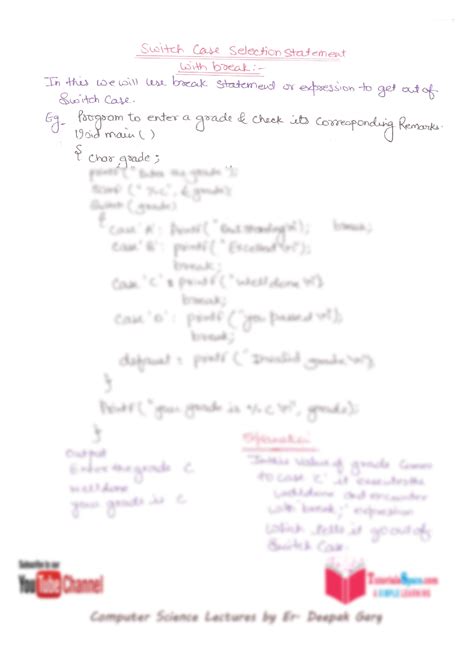 Switch Case Selection Statement
With break:-
In this we will use break statement or expression to get out of
Switch Case.
Eg. Program to enter a grade & check its corresponding Remarks.
Void main ( )
{ Char grade ;
printf (" Enter the grade ");
Scanf (" %c", & grade);
Switch (grade)
{ Case 'A': printf("Outstanding\n"); break;
Case 'B': printf(" Excellent \n");
break;
Case 'C': printf("Welldone \n");
break;
Case 'D': printf("you passed \n");
break;
default : printf (" Invalid grade \n");
}
Printf("your grade is %c \n", grade);
}
Output
Enter the grade C
Welldone
your grade is C
Explanation:
In this Value of grade
to case 'C' it executes the
Welldone and encounter
with 'break;' expression
Which tells it go out of
Switch Case.
Subscribe to our
YouTube Channel
TutorialsSpace.com
A SIMPLE LEARNING
Computer Science Lectures by Er- Deepak Garg